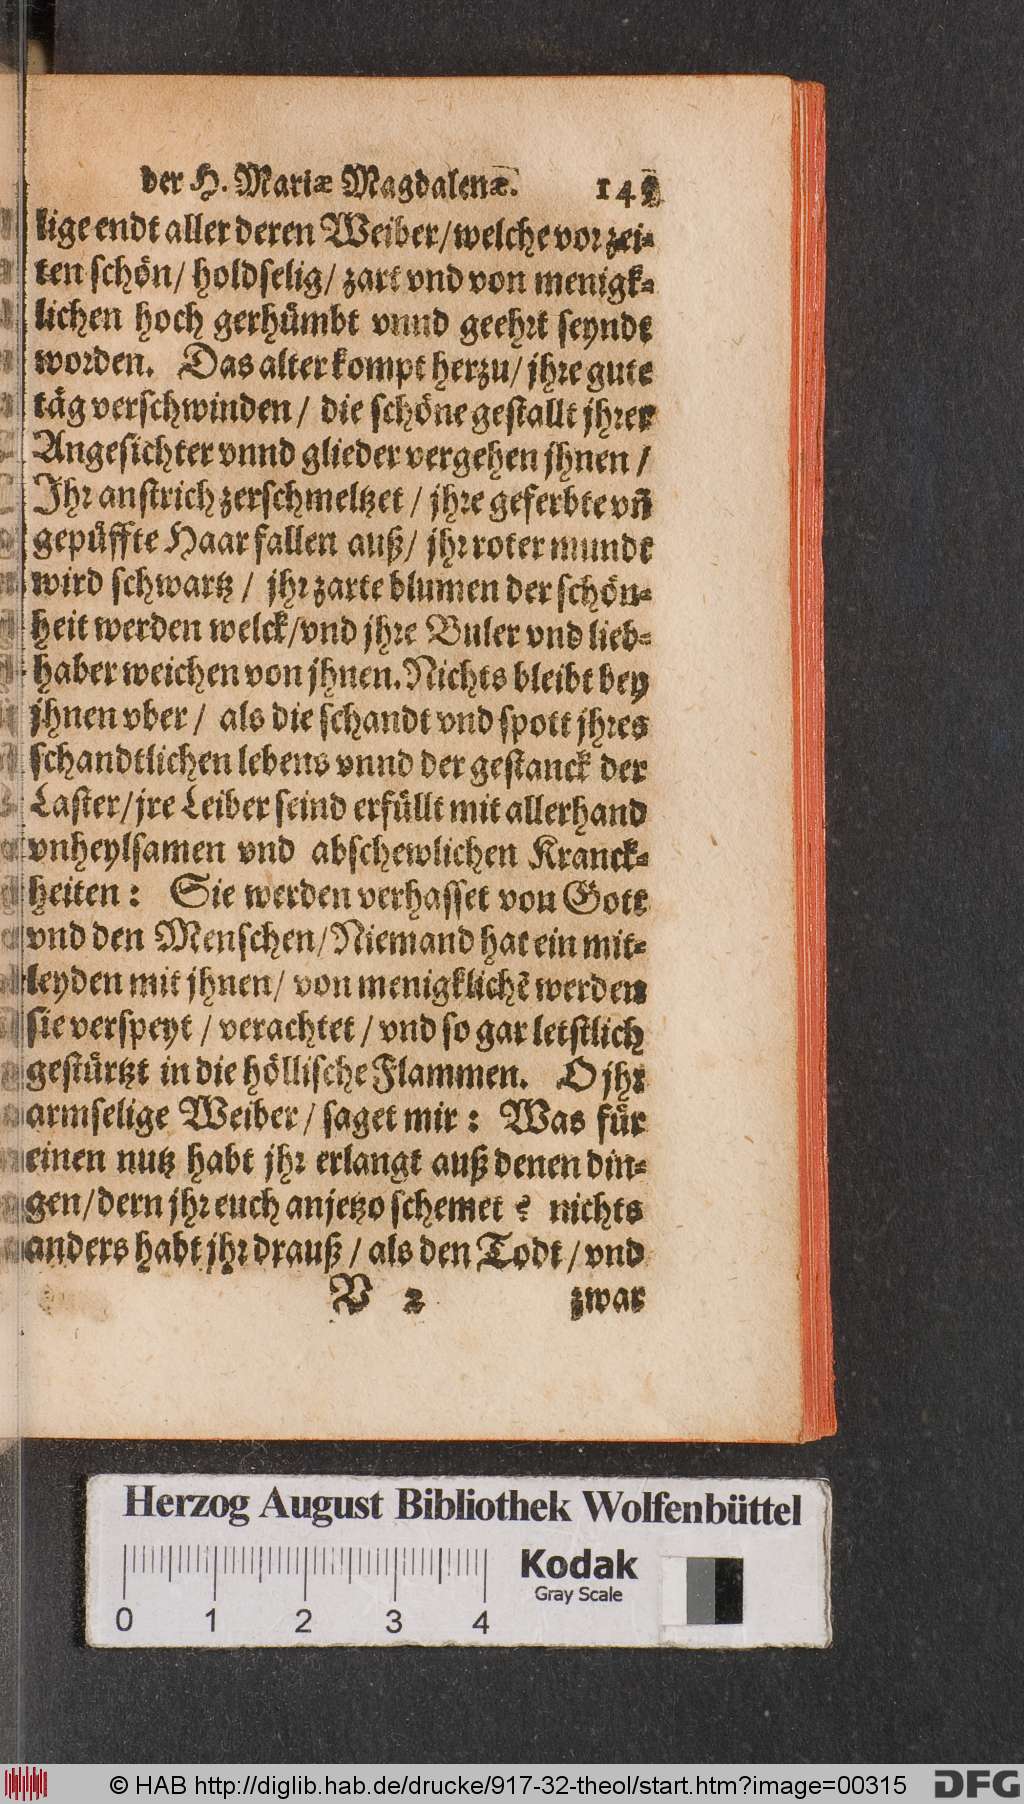 der H. Mariæ Magdalenæ. 145
lige endt aller deren Weiber/welche vor zei-
ten schön/ holdselig/ zart vnd von menigk-
lichen hoch gerhümbt vnnd geehrt seyndt
worden. Das alter kompt herzu/ jhre gute
täg verschwinden/ die schöne gestallt jhrer
Angesichter vnnd glieder vergehen jhnen/
Ihr anstrich zerschmeltzet/ jhre geferbte vñ
gepüffte Haar fallen auß/ jhr roter mundt
wird schwartz/ jhr zarte blumen der schön-
heit werden welck/vnd jhre Buler vnd lieb-
haber weichen von jhnen. Nichts bleibt bey
jhnen vber/ als die schandt vnd spott jhres
schandtlichen lebens vnnd der gestanck der
Laster/jre Leiber seind erfüllt mit allerhand
vnheylsamen vnd abschewlichen Kranck-
heiten: Sie werden verhasset von Gott
vnd den Menschen/Niemand hat ein mit-
leyden mit jhnen/ von menigklichē werden
sie verspeyt/ verachtet/ vnd so gar letstlich
gestürtzt in die höllische Flammen. O jhr
armselige Weiber/ saget mir: Was für
einen nutz habt jhr erlangt auß denen din-
gen/dern jhr euch anjetzo schemet? nichts
anders habt jhr drauß/ als den Todt/vnd
V 2 zwar
Herzog August Bibliothek Wolfenbüttel
Kodak
Gray Scale
0 1 2 3 4
© HAB http://diglib.hab.de/drucke/917-32-theol/start.htm?image=00315
DFG